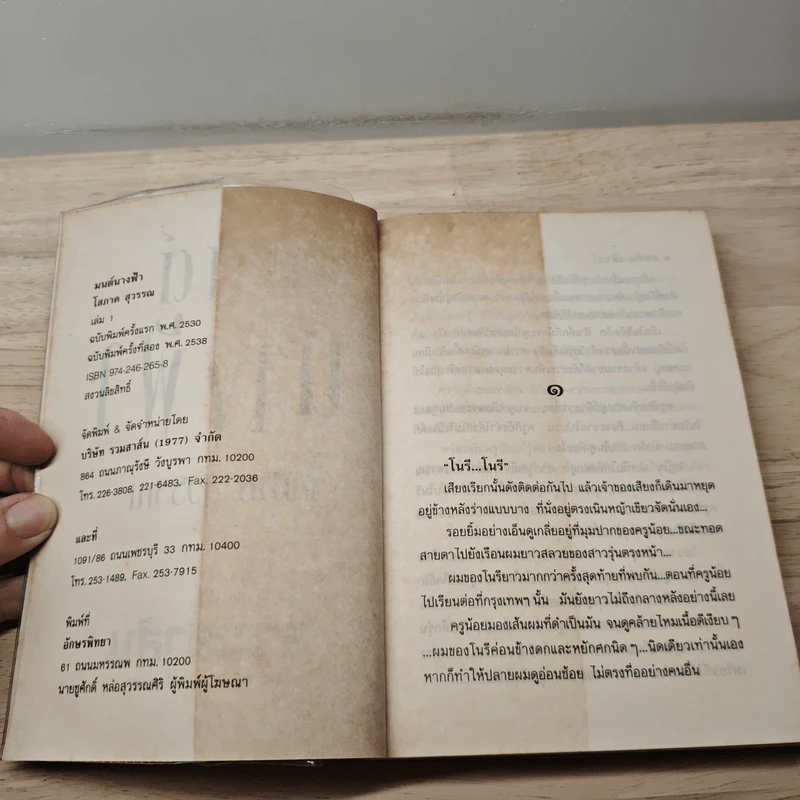 มนต์นางฟ้า
โสภาค สุวรรณ
เล่ม 1
ฉบับพิมพ์ครั้งแรก พ.ศ. 2530
ฉบับพิมพ์ครั้งที่สอง พ.ศ. 2538
ISBN 974-246-265-8
สงวนลิขสิทธิ์
จัดพิมพ์ & จัดจำหน่ายโดย
บริษัท รวมสาส์น (1977) จำกัด
864 ถนนภาณุรังษี วังบูรพา กทม. 10200
โทร. 226-3808, 221-6483, Fax. 222-2036
และที่
1091/86 ถนนเพชรบุรี 33 กทม. 10400
โทร. 253-1489, Fax. 253-7915
พิมพ์ที่
อักษรพิทยา
61 ถนนมหรรณพ กทม. 10200
นายชูศักดิ์ หล่อสุวรรณศิริ ผู้พิมพ์ผู้โฆษณา
๑
"โนรี...โนรี"
เสียงเรียกนั้นดังติดต่อกันไป แล้วเจ้าของเสียงก็เดินมาหยุด
อยู่ข้างหลังร่างแบบบาง ที่นั่งอยู่ตรงเนินหญ้าเขียวจัดนั่นเอง...
รอยยิ้มอย่างเอ็นดูเกลี่ยอยู่ที่มุมปากของครูน้อย...ขณะทอด
สายตาไปยังเรือนผมยาวสลวยของสาวรุ่นตรงหน้า...
ผมของโนรียาวมากกว่าครั้งสุดท้ายที่พบกัน...ตอนที่ครูน้อย
ไปเรียนต่อที่กรุงเทพฯ นั้น มันยังยาวไม่ถึงกลางหลังอย่างนี้เลย
ครูน้อยมองเส้นผมที่ดำเป็นมัน จนดูคล้ายไหมเนื้อดีเงียบๆ
...ผมของโนรีค่อนข้างดกและหยักศกนิดๆ...นิดเดียวเท่านั้นเอง
หากก็ทำให้ปลายผมดูอ่อนช้อย ไม่ตรงทื่ออย่างคนอื่น